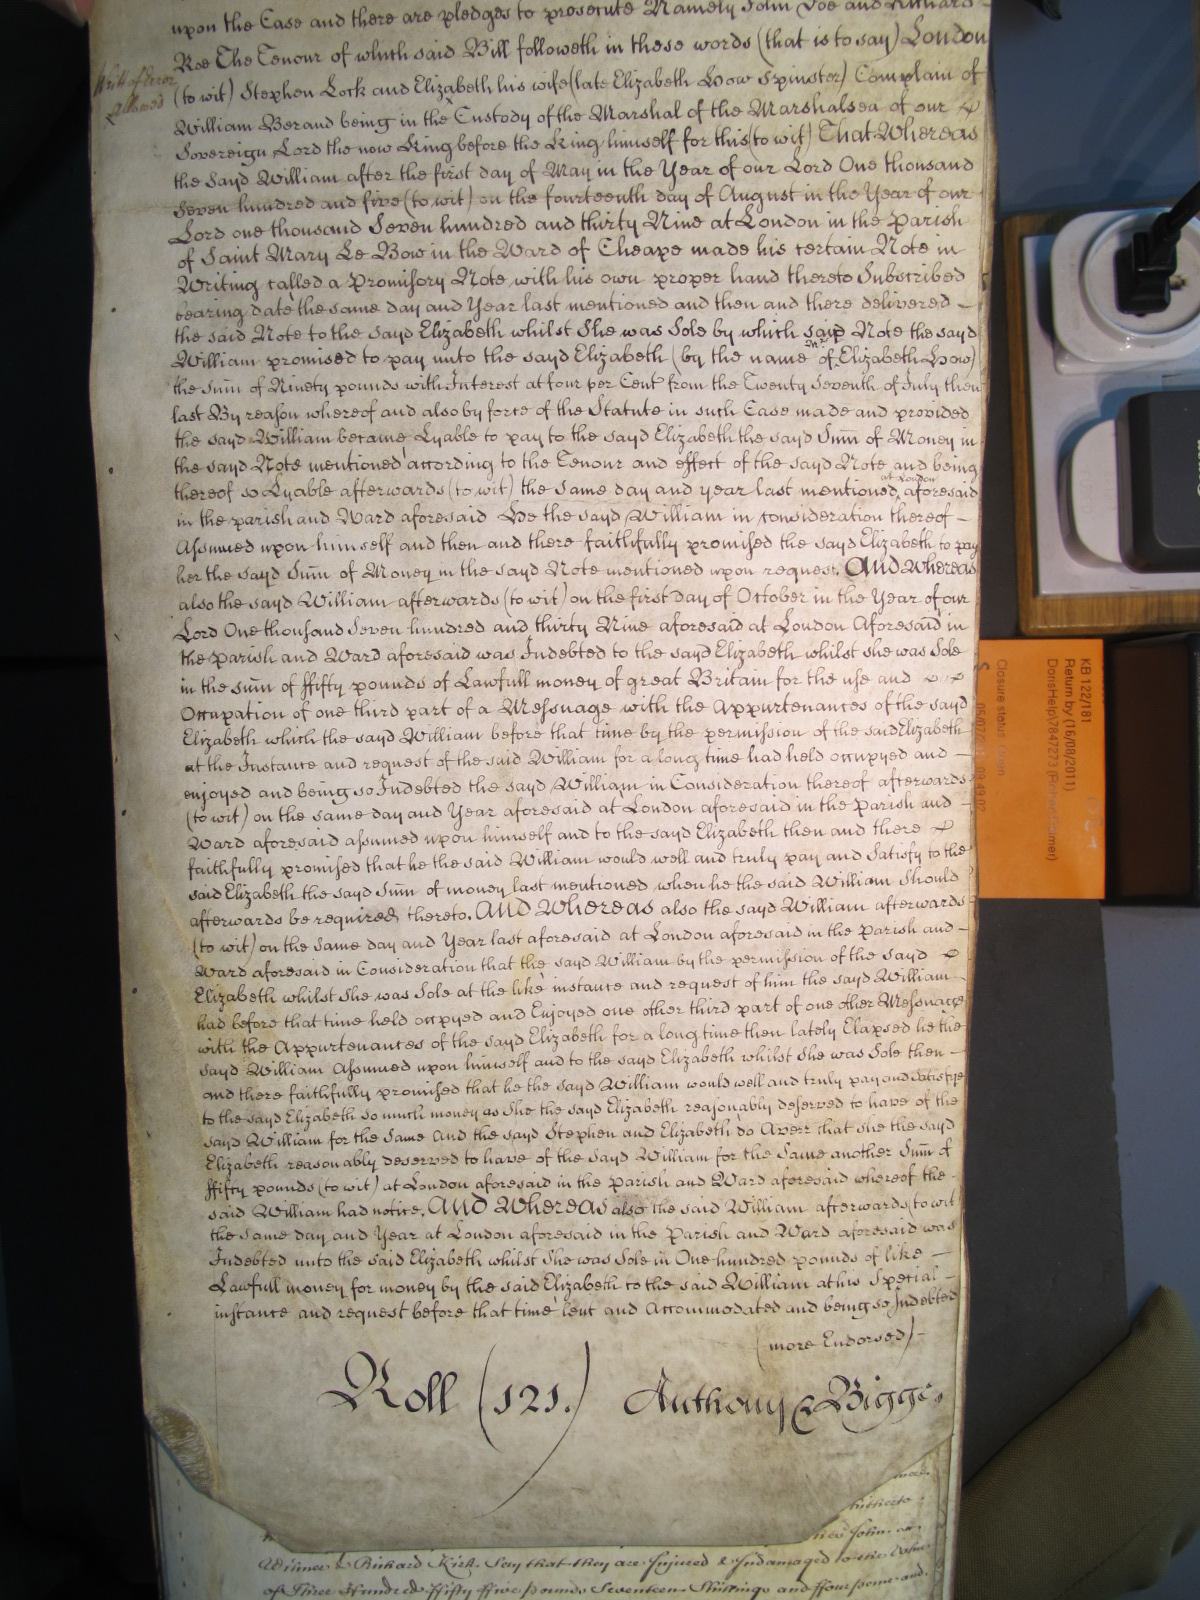 upon the Case and there are pledges to prosecute Namely John Doe and Richard
Roe The Tenour of which said Bill followeth in these words (that is to say) London
Writt of Error
Allowed
(to wit) Stephen Lock and Elizabeth his wife (late Elizabeth How Spinster) Complain of
William Berand being in the Custody of the Marshal of the Marshalsea of our
Sovereign Lord the now King before the King himself for this (to wit) That Whereas
the Sayd William after the first day of May in the Year of our Lord One thousand
Seven hundred and five (to wit) on the fourteenth day of August in the Year of our
Lord one thousand Seven hundred and thirty Nine at London in the Parish
of Saint Mary Le Bow in the Ward of Cheape made his certain Note in
Writing called a Promisory Note with his own proper hand thereto Subscribed
bearing date the same day and Year last mentioned and then and there delivered
the said Note to the Sayd Elizabeth whilst She was Sole by which said Note the sayd
William promised to pay unto the sayd Elizabeth (by the name of Mrs. Elizabeth How)
the Sum of Ninety pounds with Interest at four per Cent from the Twenty Seventh of July then
last By reason whereof and also by force of the Statute in such Case made and provided
the sayd William became Lyable to pay to the sayd Elizabeth the sayd Sum of Money in
the sayd Note mentioned according to the Tenour and effect of the sayd Note and being
thereof so Lyable afterwards (to wit) the Same day and year last mentioned at London aforesaid
in the parish and Ward aforesaid He the sayd William in consideration thereof
Assumed upon himself and then and there faithfully promised the sayd Elizabeth to pay
her the sayd Sum of Money in the sayd Note mentioned upon request. And Whereas
also the sayd William afterwards (to wit) on the first day of October in the Year of our
Lord One thousand Seven hundred and thirty Nine aforesaid at London Aforesaid in
the Parish and Ward aforesaid was Indebted to the sayd Elizabeth whilst she was Sole
in the sum of ffifty pounds of Lawfull money of great Britain for the use and
Occupation of one third part of a Messuage with the Appurtenances of the sayd
Elizabeth which the sayd William before that time by the permission of the said Elizabeth
at the Instance and request of the said William for a long time had held occupyed and
enjoyed and being so Indebted the sayd William in Consideration thereof afterwards
(to wit) on the same day and Year aforesaid at London aforesaid in the Parish and
Ward aforesaid assumed upon himself and to the sayd Elizabeth then and there
faithfully promised that he the said William would well and truly pay and Satisfy to the
said Elizabeth the sayd Sum of money last mentioned when he the said William Should
afterwards be required thereto. And Whereas also the sayd William afterwards
(to wit) on the same day and Year last aforesaid at London aforesaid in the Parish and
Ward aforesaid in Consideration that the sayd William by the permission of the Sayd
Elizabeth whilst She was Sole at the like instance and request of him the sayd William
had before that time held occpyed and Enjoyed one other third part of one other Messuage
with the Appurtenances of the sayd Elizabeth for a long time then lately Elapsed he the
sayd William Assumed upon himself and to the sayd Elizabeth whilst She was Sole then
and there faithfully promised that he the Sayd William would well and truly pay and Satisfye
to the sayd Elizabeth so much money as She the sayd Elizabeth reasonably deserved to have of the
sayd William for the Same And the sayd Stephen and Elizabeth do Averr that She the sayd
Elizabeth reasonably deserved to have of the Sayd William for the Same another Sum of
ffifty pounds (to wit) at London aforesaid in the parish and Ward aforesaid whereof the
said William had notice. And Whereas also the said William afterwards (to wit)
the Same day and Year at London aforesaid in the Parish and Ward aforesaid was
Indebted unto the said Elizabeth whilst She was Sole in One hundred pounds of like
Lawfull money for money by the said Elizabeth to the said William at his Special
instance and request before that time lent and Accommodated and being so Indebted
(more Endorsed)
Roll (121.) Anthony & Bigge.
hitherto
John
& Richard Kirk. Say that they are Injured & Indamaged to the Value
of Three Hundred ffifty ffive pounds Seventeen Shillings and ffourpence and
KB 122/181
Return by (16/08/2011)
DorisHelp\7847273 (
Closure status: Open